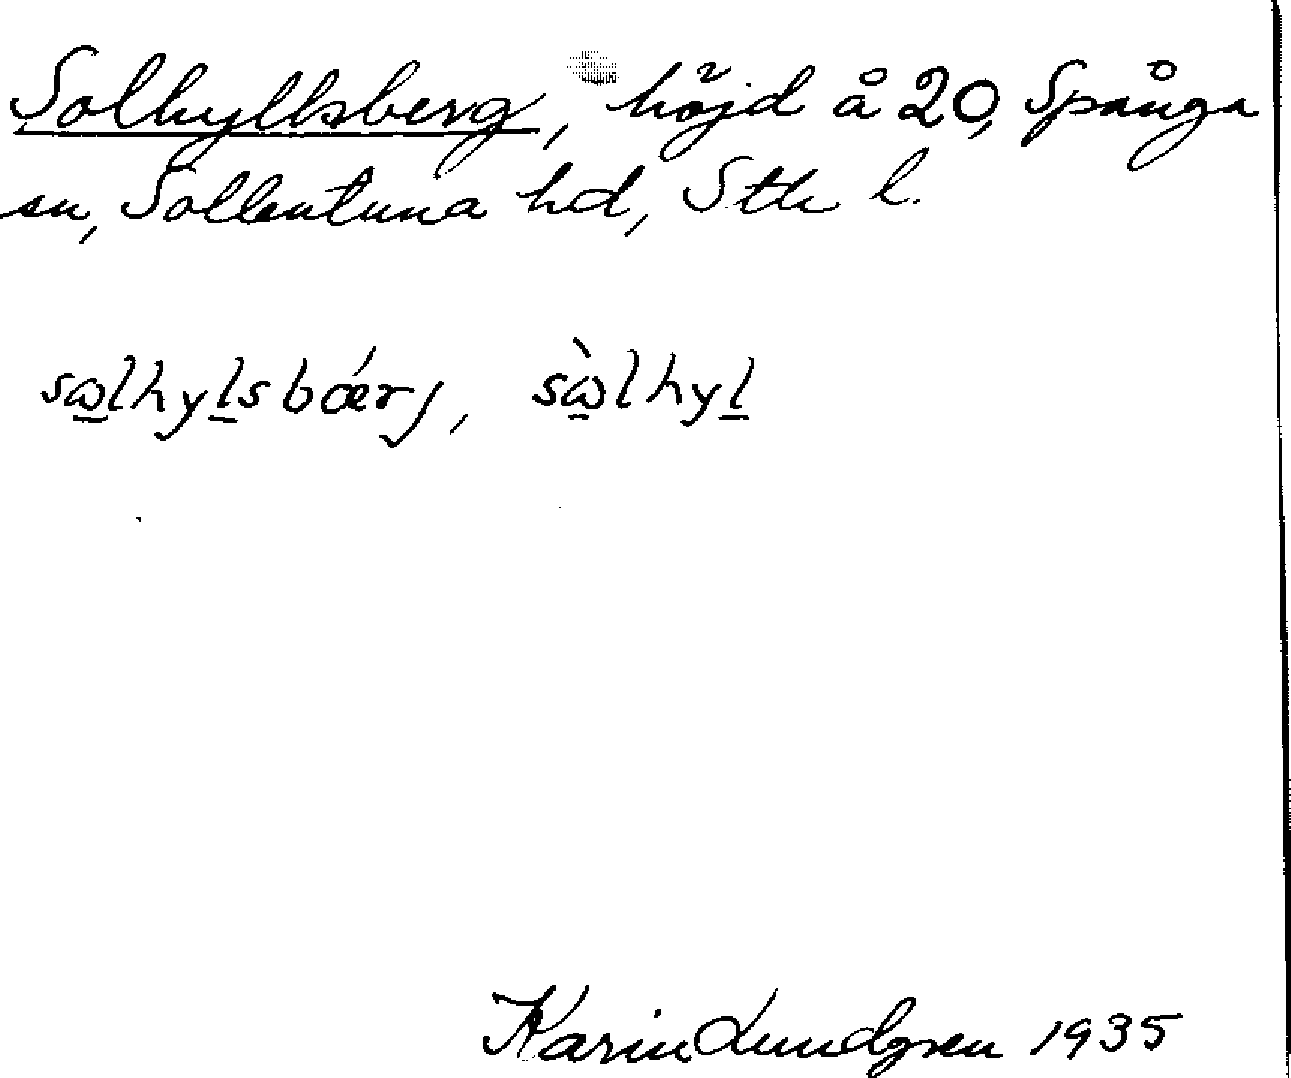 Solhyllsberg, höjd å 20, Spånga
sn, Sollentuna hd, Sth l.
sω̲lhyl̲sbǽrj, sὼ̲lhyl̲
Karin Lundgren 1935